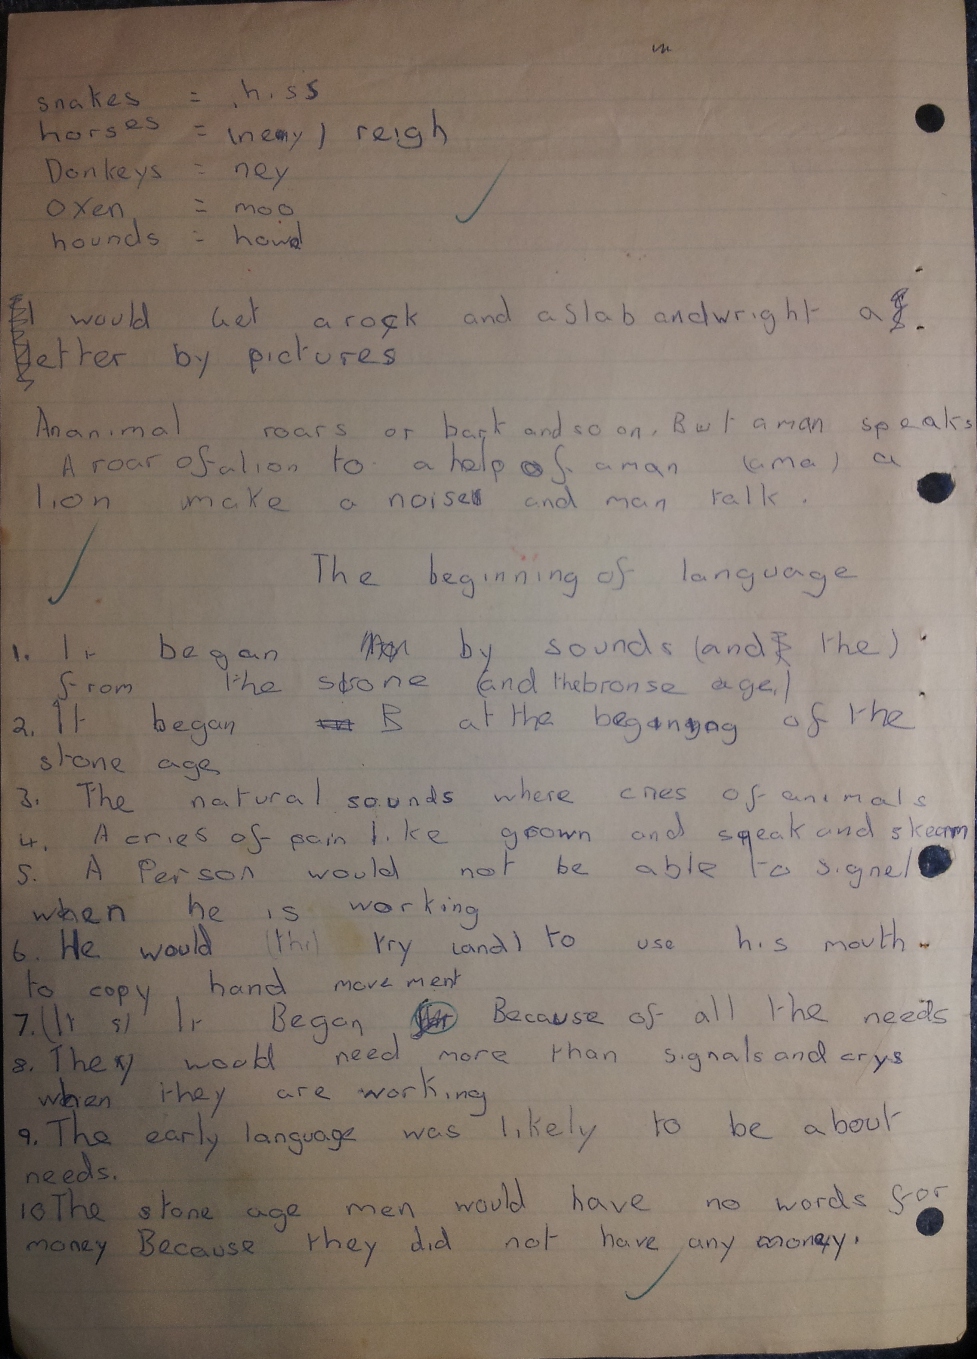 snakes = hiss
horses = (neay) reigh
Donkeys = ney
oxen = moo
hounds = howd
I would Get a rock and a Slab and wright a
letter by pictures
An animal roars or bark and so on. But a man speaks
A roar of a lion to a help of a man (ama) a
lion make a noise and man talk.
The beginning of language
1. It began by sounds (and the)
from the stone (and the bronse age,)
2. It began B at the begining of the
stone age
3. The natural sounds where cries of animals
4. A cries of pain like grown and sqeak and skeam
5. A Person would not be able to signel
when he is working
6. He would (thr) try (and) to use his mouth
to copy hand movement
7. (It s) It Began Because of all the needs
8. They would need more than signals and crys
when they are working
9. The early language was likely to be about
needs.
10 The stone age men would have no words for
money Because they did not have any money.